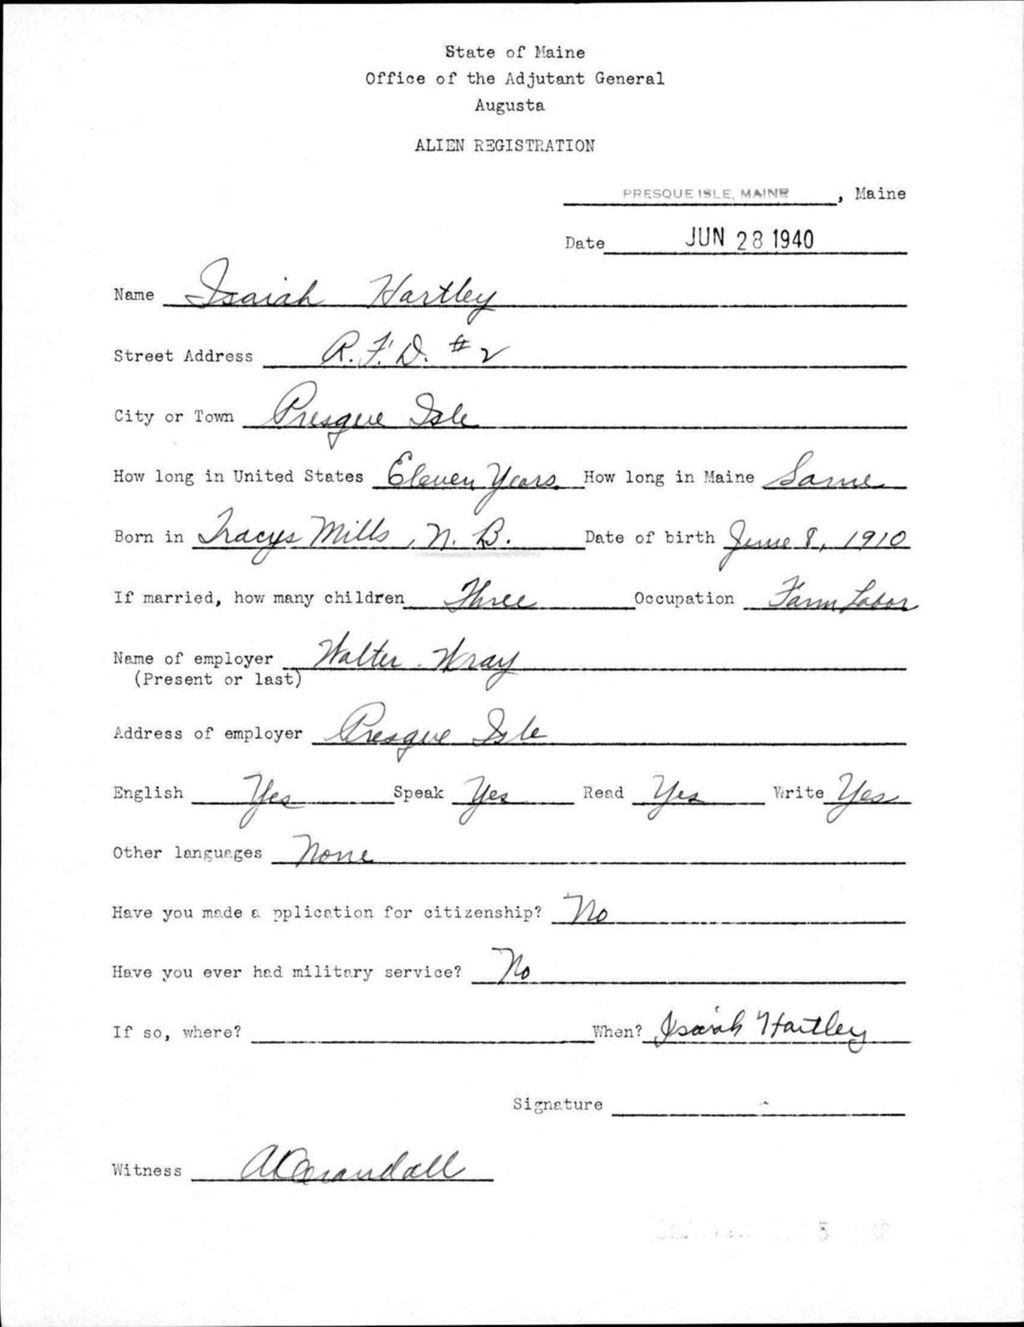 State of Maine
Office of the Adjutant General
Augusta
ALIEN REGISTRATION
PRESQUE ISLE, MAINE, Maine
Date JUN 28 1940
Name Isaiah Hartley
Street Address R.F.D. #2
City or Town Presque Isle
How long in United States Eleven Years. How long in Maine Same
Born in Tracys Mills, N. B. Date of birth June 8, 1910
If married, how many children Three Occupation Farm Labor
Name of employer Walter Wray
(Present or last)
Address of employer Presque Isle
English Yes Speak Yes Read Yes Write Yes
Other languages None
Have you made a pplication for citizenship? No
Have you ever had military service? No
If so, where? When? Isaiah Hartley
Signature
Witness A Crandall